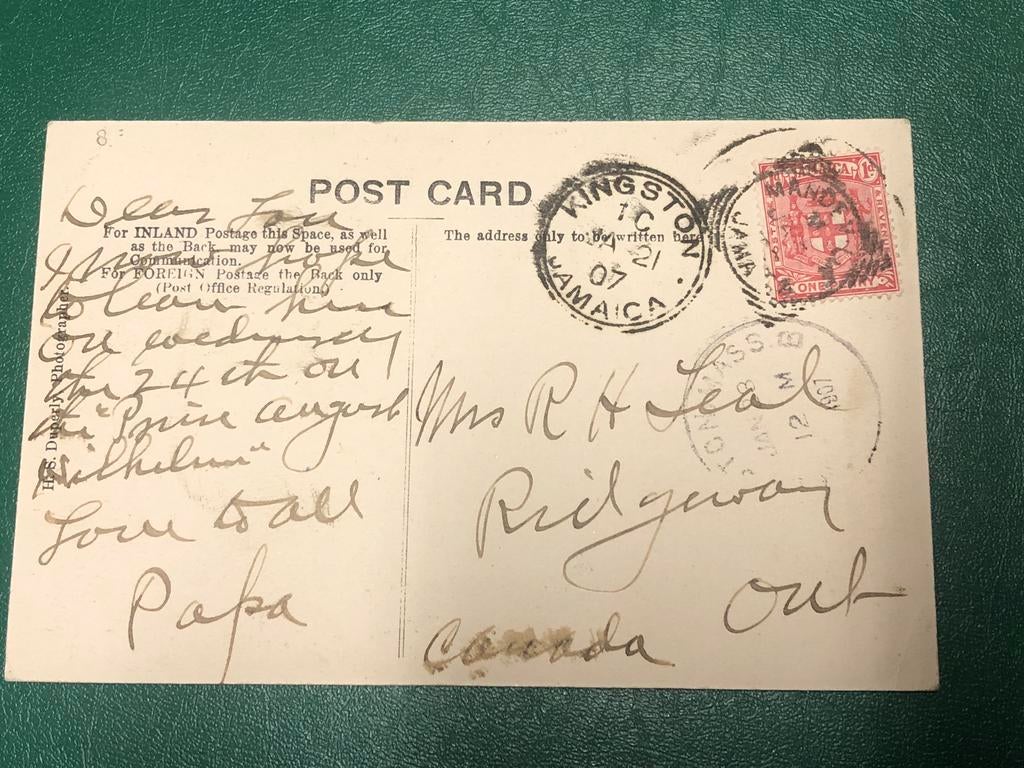 8
POST CARD
For INLAND Postage this Space, as well
as the Back, may now be used for
Communication.
For FOREIGN Postage the Back only
(Post Office Regulation.)
The address only to be written here
H. S. Duperly, Photographer.
Dear Lou
I hope
to leave here
on wednesday
the 24th on
the "Prinz August
Wilhelm"
Love to all
Papa
Mrs R H Leal
Ridgeway
Ont
Canada
KINGSTON
21
07
JAMAICA
JAMAICA 1D
POSTAGE & REVENUE
ONE PENNY
MANDEVILLE
JAMAICA
MASS. B
JAN 8
12 M
1907